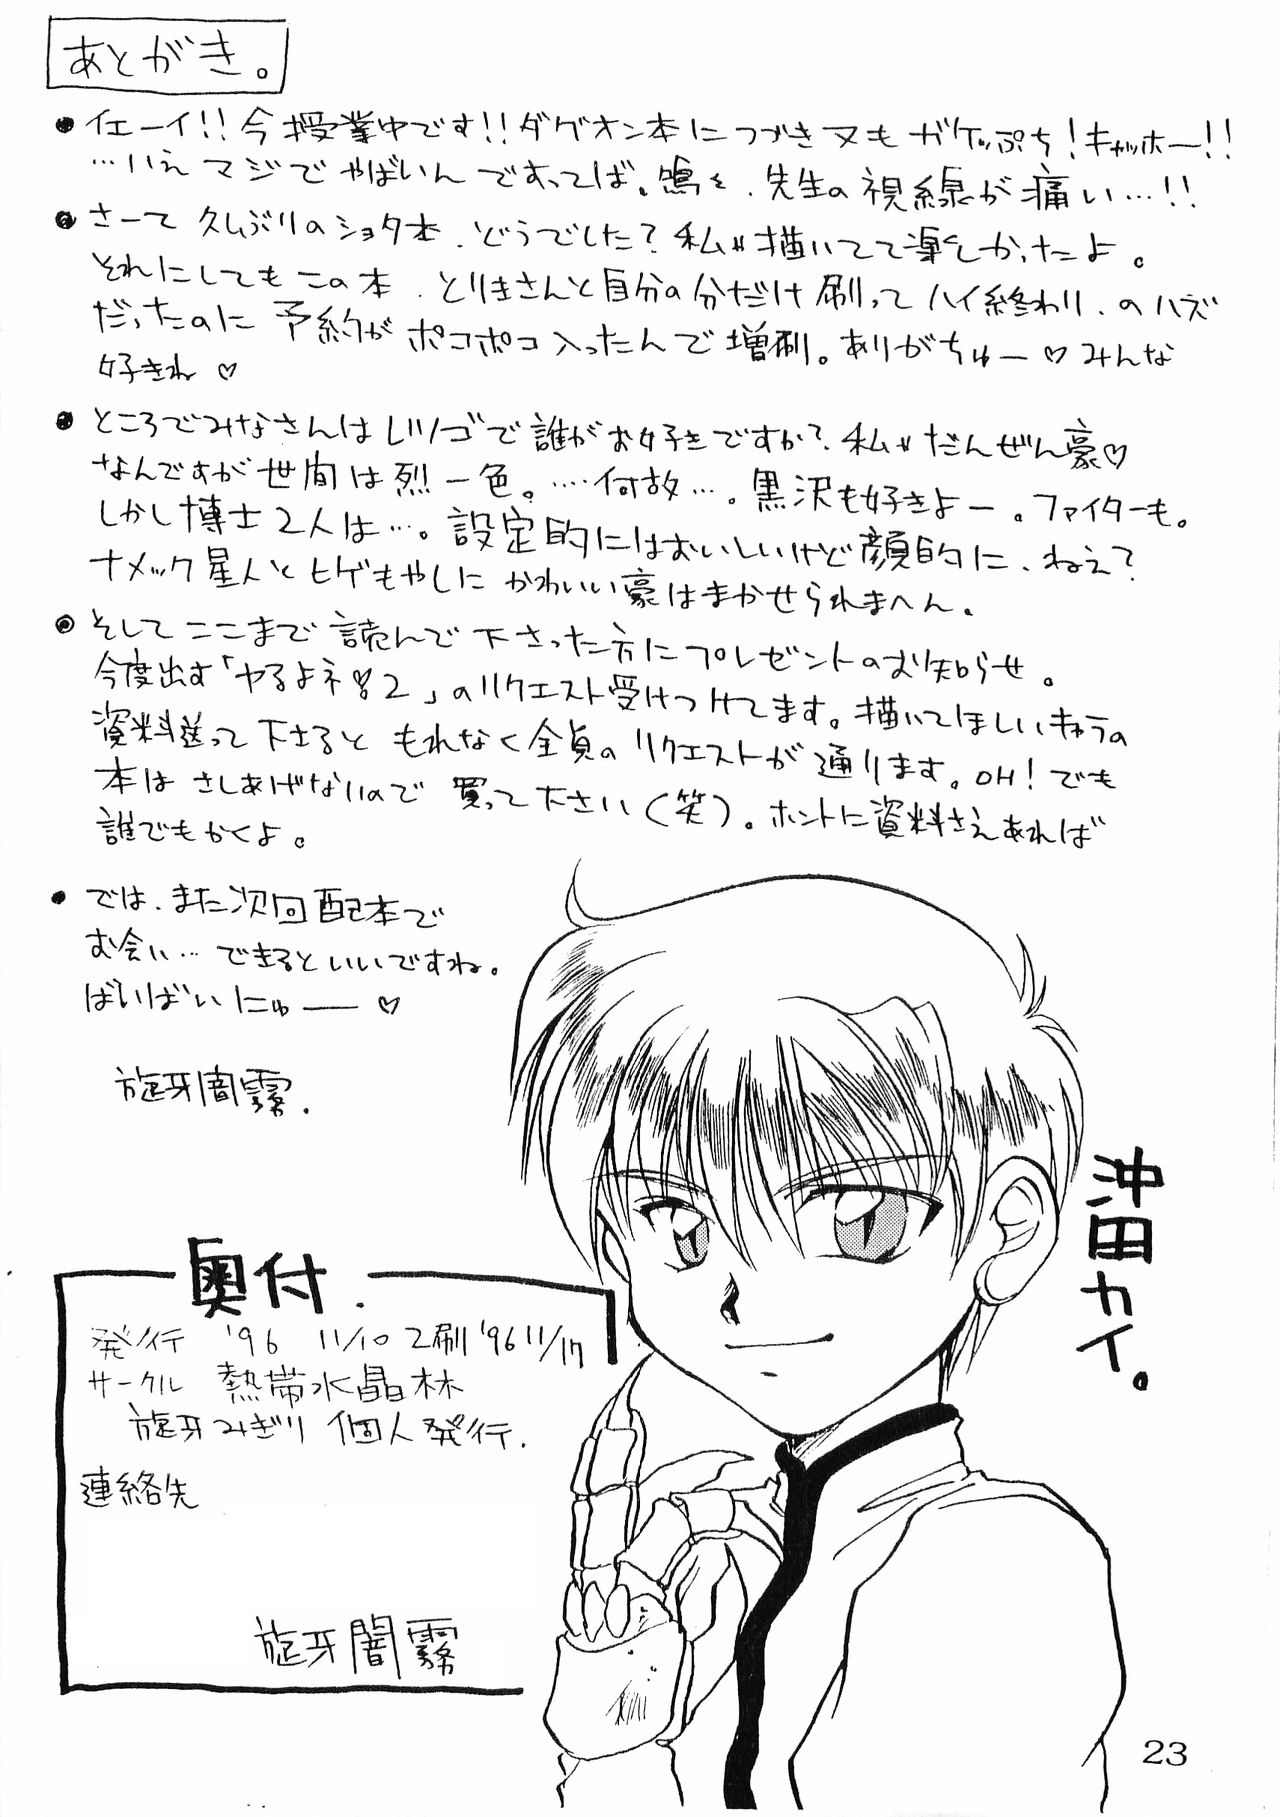 あとがき。
・イエーイ!!今授業中です!!ダグオン本につづき又もガケっぷち!キャッホー!!
…いえマジでやばいんですってば。鳴々、先生の視線が痛い…!!
・さーて久しぶりのショタ本、どうでした?私は描いてて楽しかったよ。
それにしてもこの本、とりまさんと自分の分だけ刷ってハイ終わり、のハズ
だったのに予約がポコポコ入ったんで増刷。ありがちゅー♡みんな
好きね♡
・ところでみなさんはレツゴで誰がお好きですか?私はだんぜん豪♡
なんですが世間は烈一色。‥‥何故…。黒沢も好きよー。ファイターも。
しかし博士2人は…。設定的にはおいしいけど顔的に、ねえ?
ナメック星人とヒゲもやしにかわいい豪はまかせられまへん。
・そしてここまで読んで下さった方にプレゼントのお知らせ。
今度出す「ヤるよネ 2」のリクエスト受けつけてます。描いてほしいキャラの
資料送って下さるともれなく全員のリクエストが通ります。OH!でも
本はさしあげないので買って下さい(笑)。ホントに資料さえあれば
誰でもかくよ。
・では、また次回配本で
お会い…できるといいですね。
ばいばいにゅー♡
旋牙闇霧.
沖田カイ。
奥付.
発行 '96 11/10 2刷 '96 11/17
サークル 熱帯水晶林
旋牙みぎり 個人発行.
連絡先
旋牙闇霧
23